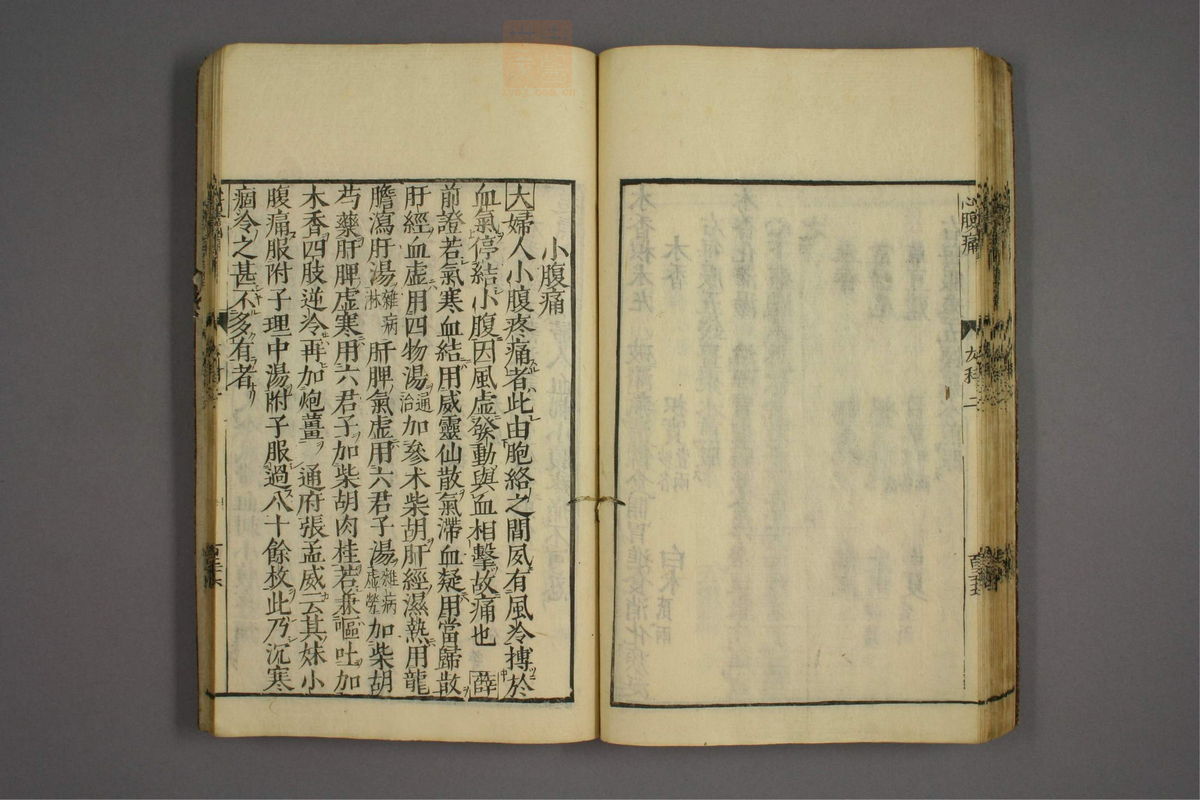 心腹痛
女科二
小腹痛
大婦人小腹疼痛者此由胞絡之間夙有風冷搏於
血氣停結小腹因風虛發動與血相擊故痛也 薛
前證若氣寒血結用威靈仙散氣滯血凝用當歸散
肝經血虛用四物湯通治加參朮柴胡肝經濕熱用龍
膽瀉肝湯雜病淋肝脾氣虛用六君子湯雜病虛勞加柴胡
芍藥肝脾虛寒用六君子加柴胡肉桂若兼嘔吐加
木香四肢逆冷再加炮薑 通府張孟威云其妹小
腹痛服附子理中湯附子服過八十餘枚此乃沉寒
痼冷之甚不多有者